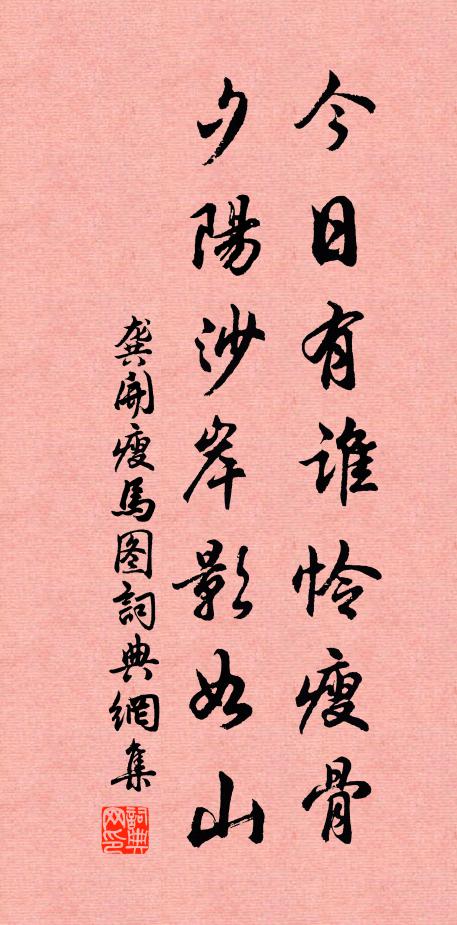 今日有誰怜瘦骨
夕陽沙岸影如山
龚開瘦馬图詞典網集
詞典网印